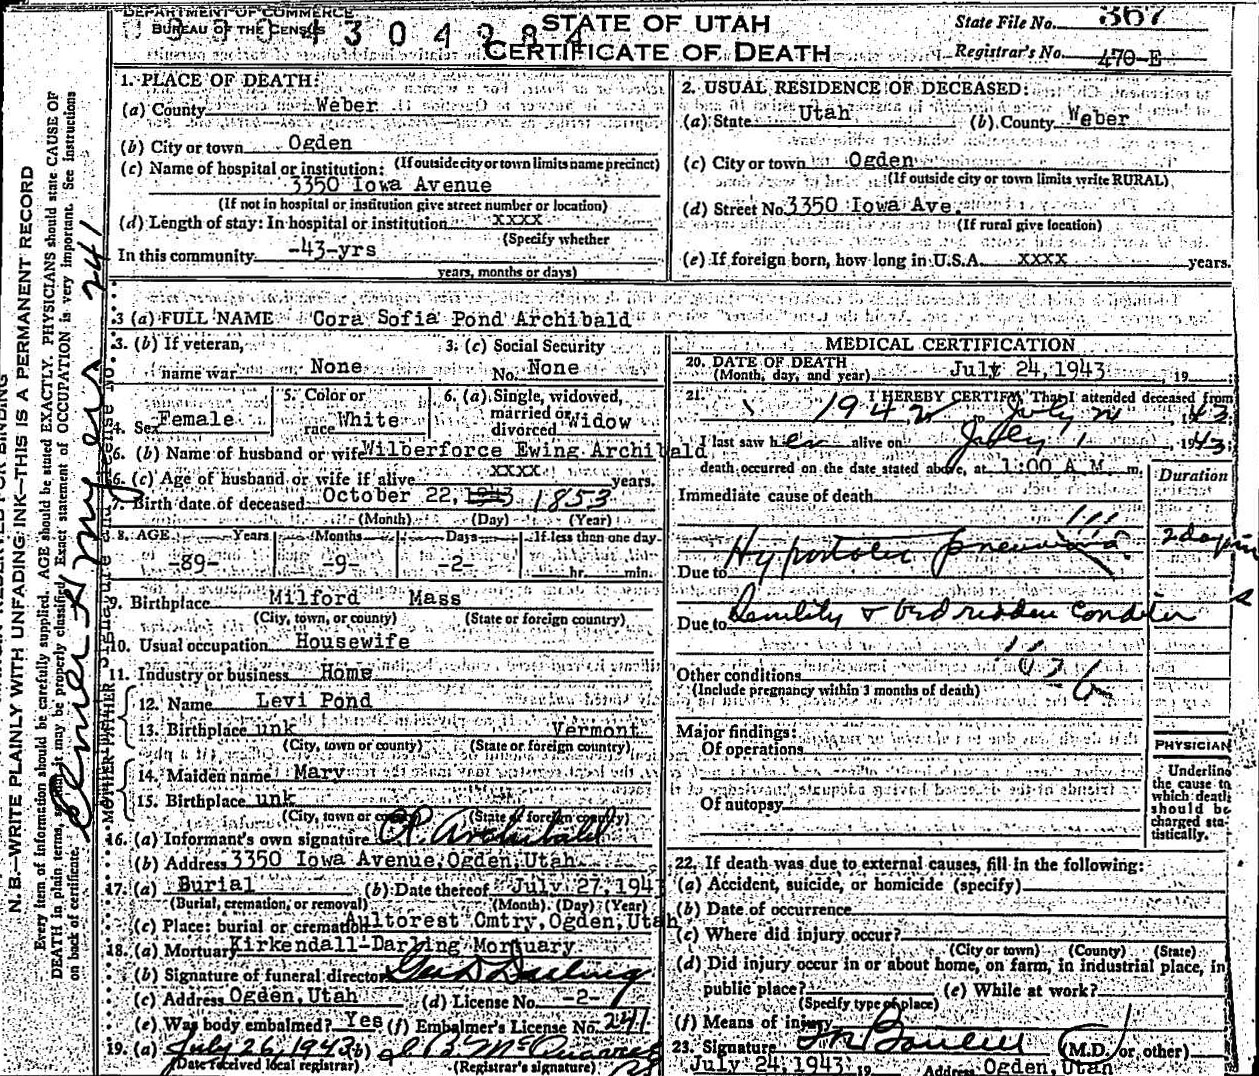 DEPARTMENT OF COMMERCE
BUREAU OF THE CENSUS
STATE OF UTAH
CERTIFICATE OF DEATH
State File No. 367
Registrar's No. 470-E
N. B.—WRITE PLAINLY WITH UNFADING INK—THIS IS A PERMANENT RECORD
Every item of information should be carefully supplied. AGE should be stated EXACTLY. PHYSICIANS should state CAUSE OF
DEATH in plain terms, so that it may be properly classified. Exact statement of OCCUPATION is very important. See instructions
on back of certificate.
1. PLACE OF DEATH:
(a) County Weber
(b) City or town Ogden
(If outside city or town limits name precinct)
(c) Name of hospital or institution:
3350 Iowa Avenue
(If not in hospital or institution give street number or location)
(d) Length of stay: In hospital or institution xxxx
(Specify whether
In this community -43-yrs
years, months or days)
2. USUAL RESIDENCE OF DECEASED:
(a) State Utah (b) County Weber
(c) City or town Ogden
(If outside city or town limits write RURAL)
(d) Street No. 3350 Iowa Ave.
(If rural give location)
(e) If foreign born, how long in U.S.A. xxxx years.
3 (a) FULL NAME Cora Sofia Pond Archibald
3. (b) If veteran,
name war None
3. (c) Social Security
No. None
4. Sex Female
5. Color or
race White
6. (a) Single, widowed,
married or
divorced Widow
6. (b) Name of husband or wife Wilberforce Ewing Archibald
6. (c) Age of husband or wife if alive xxxx years.
7. Birth date of deceased October 22, 1943 1853
(Month) (Day) (Year)
8. AGE Years Months Days If less than one day
-89- -9- -2- hr. min.
9. Birthplace Milford Mass
(City, town, or county) (State or foreign country)
10. Usual occupation Housewife
11. Industry or business Home
FATHER
12. Name Levi Pond
13. Birthplace unk Vermont
(City, town or county) (State or foreign country)
MOTHER
14. Maiden name Mary
15. Birthplace unk
(City, town or county) (State or foreign country)
16. (a) Informant's own signature Archibald
(b) Address 3350 Iowa Avenue, Ogden, Utah
17. (a) Burial (b) Date thereof July 27, 1943
(Burial, cremation, or removal) (Month) (Day) (Year)
(c) Place: burial or cremation Aultorest Cmtry, Ogden, Utah
18. (a) Mortuary Kirkendall-Darling Mortuary
(b) Signature of funeral director Geo D Darling
(c) Address Ogden, Utah (d) License No. -2-
(e) Was body embalmed? Yes (f) Embalmer's License No. 241
19. (a) July 26, 1943 (b)
(Date received local registrar) (Registrar's signature)
MEDICAL CERTIFICATION
20. DATE OF DEATH
(Month, day, and year) July 24, 1943, 19
21. I HEREBY CERTIFY, That I attended deceased from
1942 to July 24 1943
I last saw her alive on July 1 1943
death occurred on the date stated above, at 1:00 A.M. m.
Duration
Immediate cause of death
Hypostatic pneumonia 2 days
Due to
Due to Senility & bedridden condition
Other conditions
(Include pregnancy within 3 months of death)
Major findings:
Of operations
Of autopsy
PHYSICIAN
Underline
the cause to
which death
should be
charged sta-
tistically.
22. If death was due to external causes, fill in the following:
(a) Accident, suicide, or homicide (specify)
(b) Date of occurrence
(c) Where did injury occur?
(City or town) (County) (State)
(d) Did injury occur in or about home, on farm, in industrial place, in
public place? (e) While at work?
(Specify type of place)
(f) Means of injury
23. Signature (M.D. or other)
July 24, 1943, 19 Address Ogden, Utah